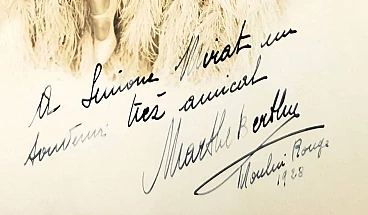 A Simone Mirat un
souvenir très amical
Marthe Berthy
Moulin Rouge
1928